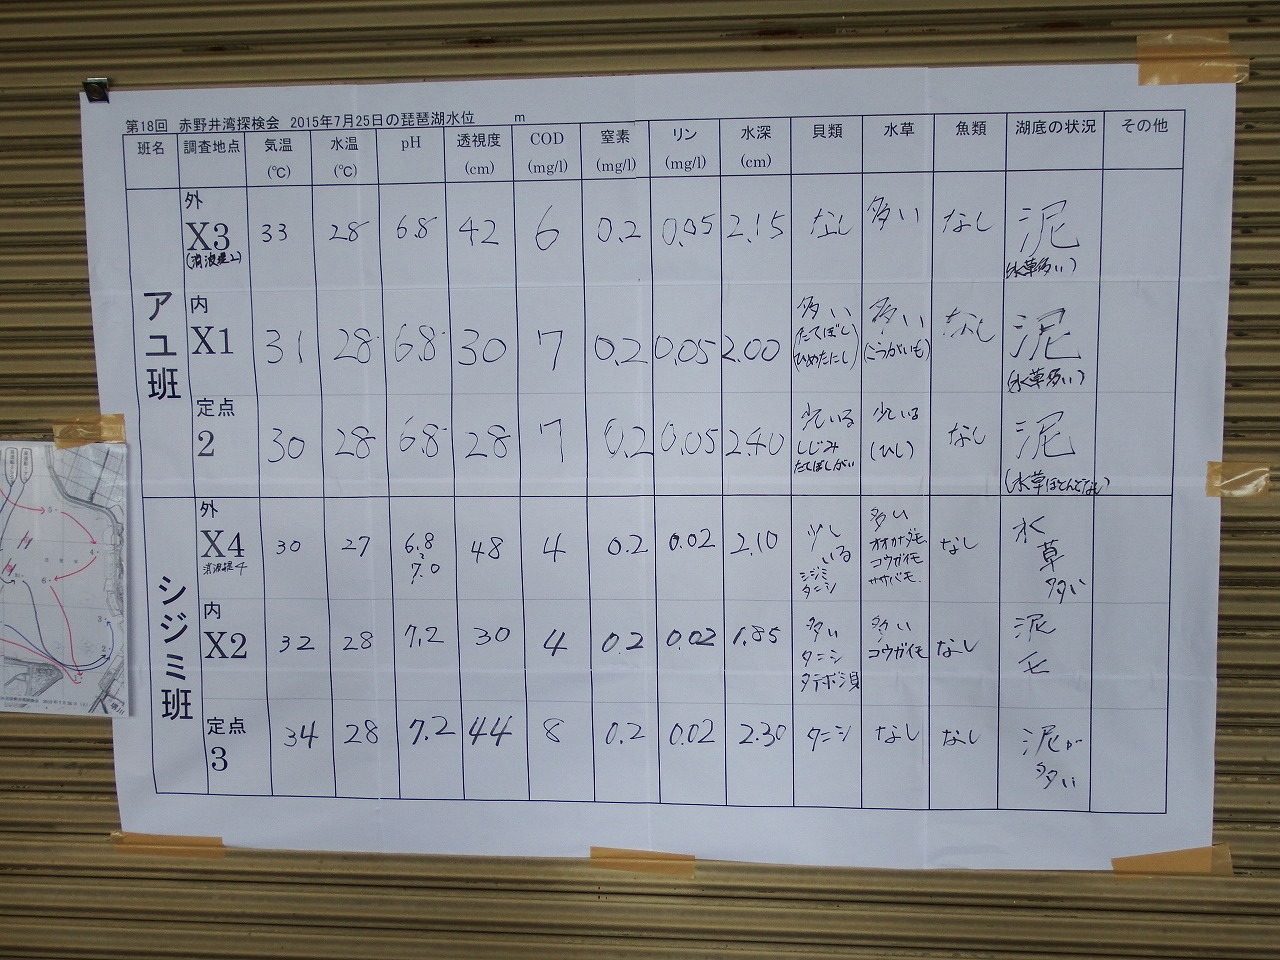 第18回 赤野井湾探検会 2015年7月25日の琵琶湖水位 m
班名 調査地点 気温 (℃) 水温 (℃) pH 透視度 (cm) COD (mg/l) 窒素 (mg/l) リン (mg/l) 水深 (cm) 貝類 水草 魚類 湖底の状況 その他
アユ班
外 X3 (消波堤2) 33 28 6.8 42 6 0.2 0.05 2.15 なし 多い なし 泥 (水草多い)
内 X1 31 28 6.8 30 7 0.2 0.05 2.00 多い (たてぼし) (ひめたにし) 多い (こうがいも) なし 泥 (水草多い)
定点 2 30 28 6.8 28 7 0.2 0.05 2.40 少しいる しじみ たてぼしがい 少しいる (ひし) なし 泥 (水草ほとんどなし)
シジミ班
外 X4 消波堤4 30 27 6.8 ~ 7.0 48 4 0.2 0.02 2.10 少し いる シジミ タニシ 多い オオカナダモ コウガイモ ササバモ なし 水草多い
内 X2 32 28 7.2 30 4 0.2 0.02 1.85 多い タニシ タテボシ貝 多い コウガイモ なし 泥
定点 3 34 28 7.2 44 8 0.2 0.02 2.30 タニシ なし なし 泥が多い
5
4
6
3
2